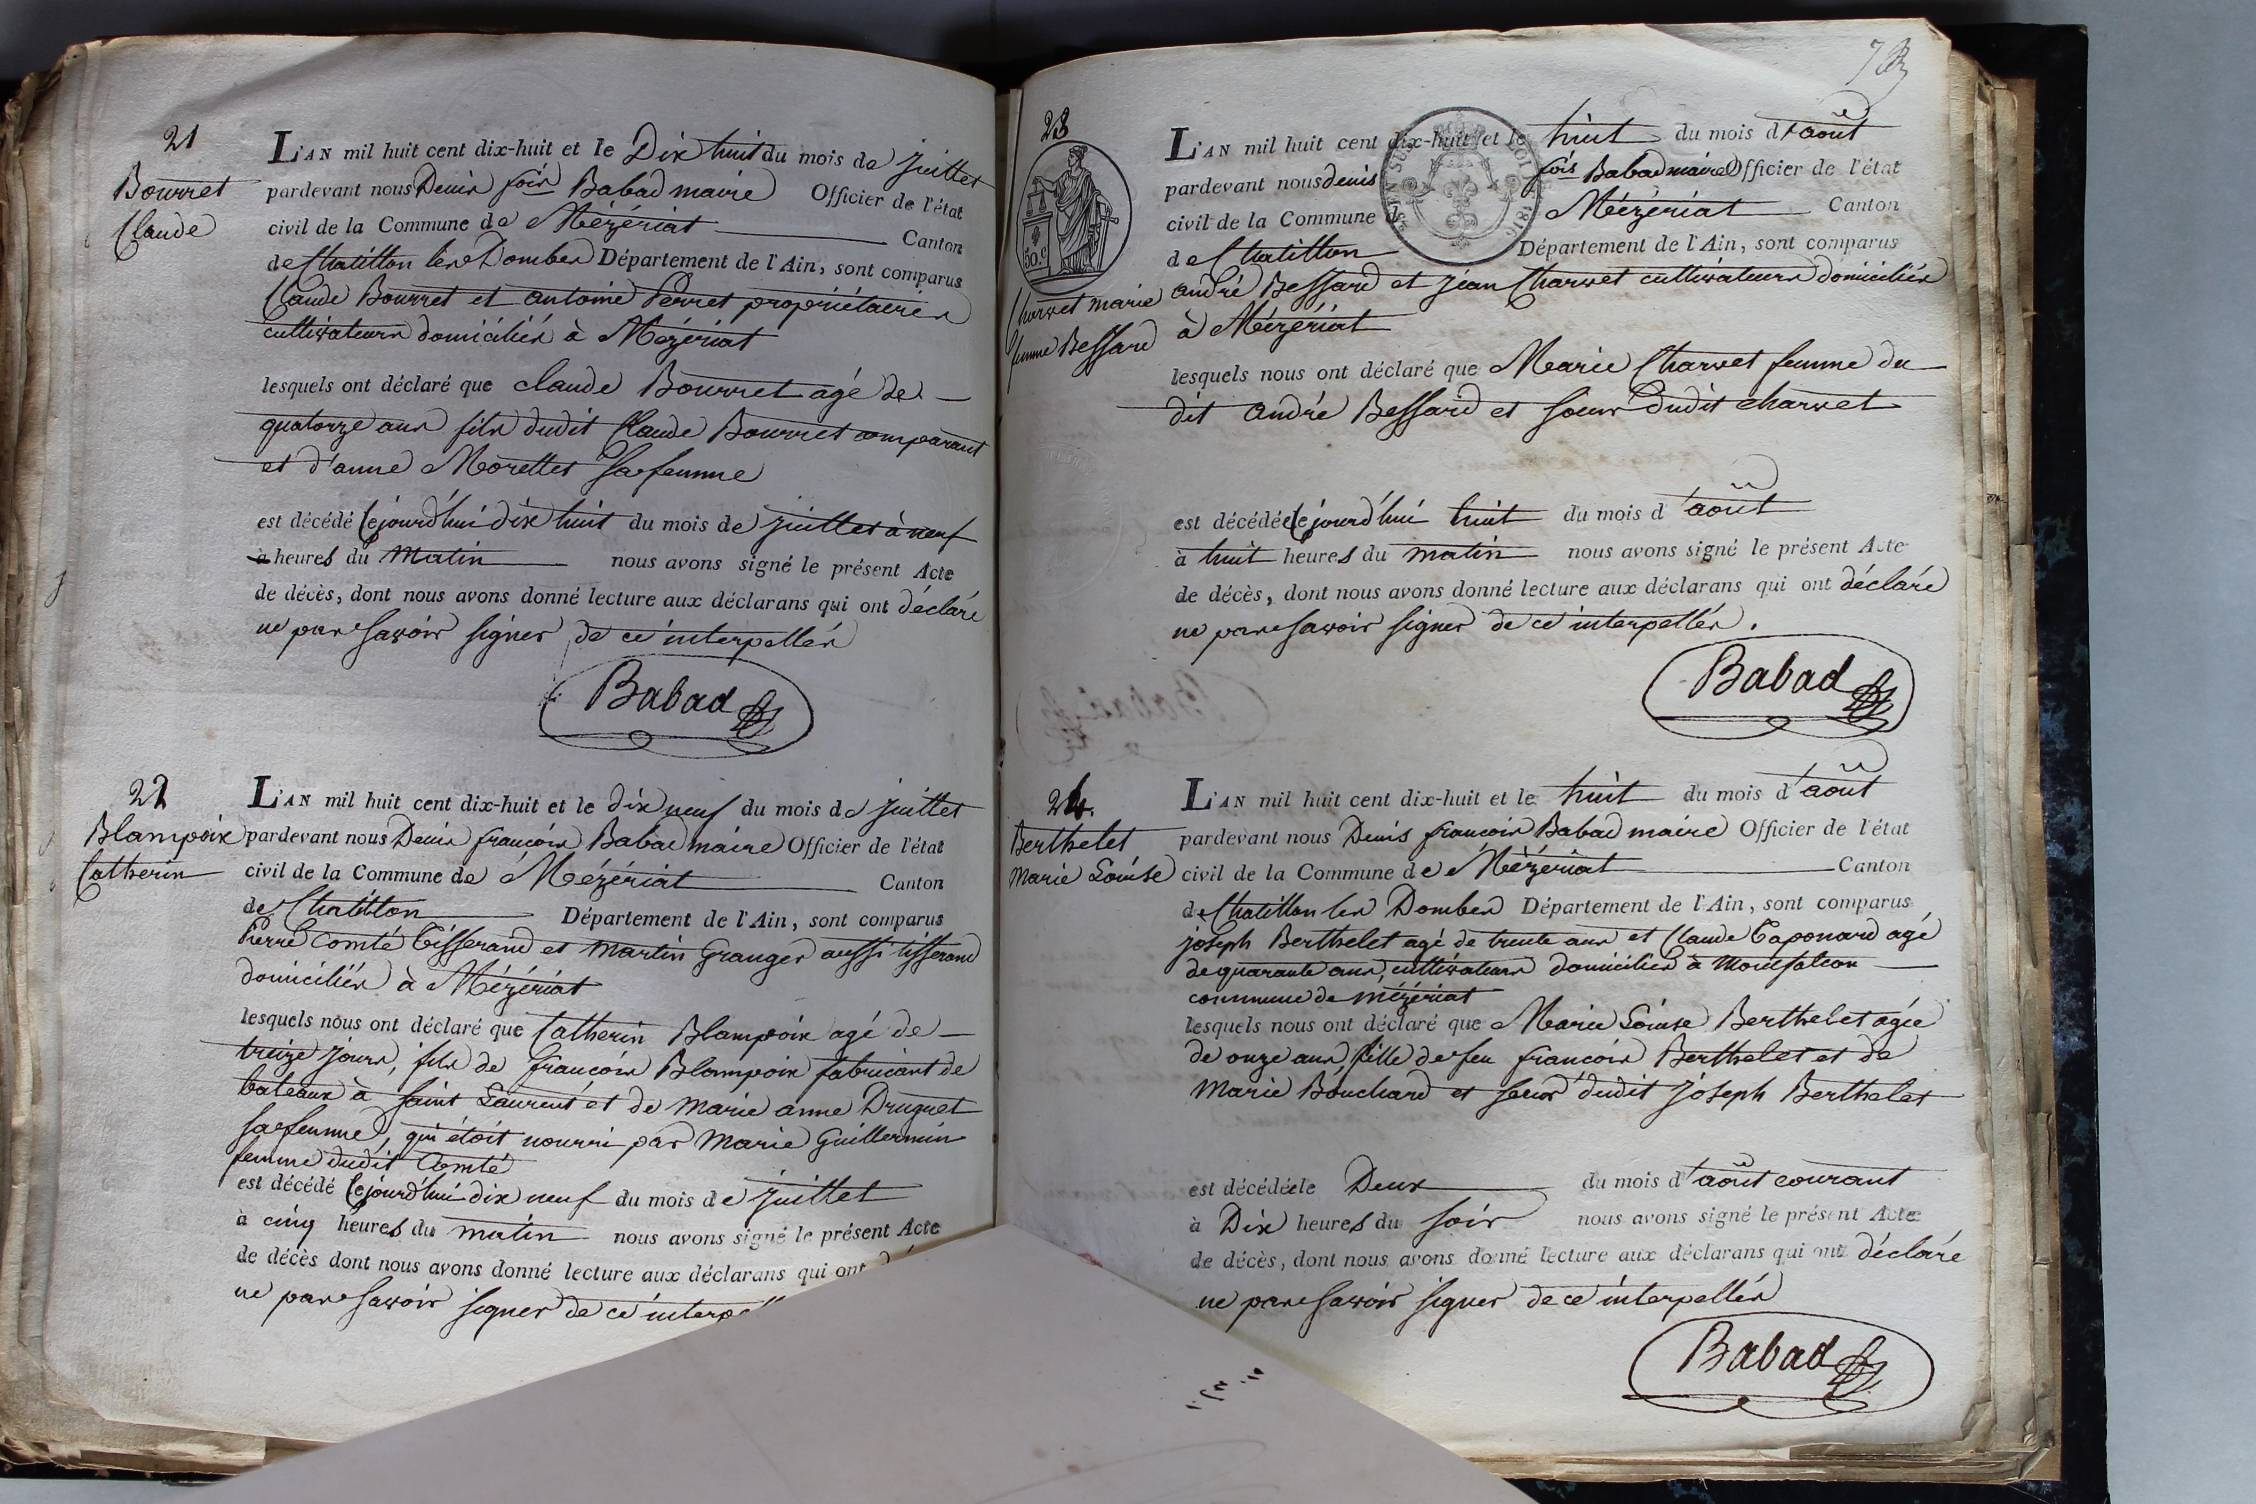 21
Bourret
Claude
L'AN mil huit cent dix-huit et le Dix huit du mois de juillet
pardevant nous Denis fois Babad maire Officier de l'état
civil de la Commune de Mézériat Canton
de Chatillon les Dombes Département de l'Ain, sont comparus
Claude Bourret et antoine Perret propriétaires
cultivateurs domiciliés à Mézériat
lesquels ont déclaré que claude Bourret agé de
quatorze ans fils dudit Claude Bourret comparant
et d'anne Morettet sa femme
est décédé cejourd'hui dix huit du mois de juillet à neuf
à heures du Matin nous avons signé le présent Acte
de décès, dont nous avons donné lecture aux déclarans qui ont déclaré
ne pas savoir signer de ce interpellés
Babad
22
Blampoix
Catherin
L'AN mil huit cent dix-huit et le dix neuf du mois de juillet
pardevant nous Denis françois Babad maire Officier de l'état
civil de la Commune de Mézériat Canton
de Chatillon Département de l'Ain, sont comparus
Pierre Comté tisserand et Martin Granger aussi tisserand
domiciliés à Mézériat
lesquels nous ont déclaré que Catherin Blampoix agé de
treize jours, fils de françois Blampoix fabricant de
bateaux à saint Laurent et de Marie anne Druguet
sa femme, qui étoit nourri par Marie Guillermin
femme dudit Comté
est décédé cejourd'hui dix neuf du mois de juillet
à cinq heures du matin nous avons signé le présent Acte
de décès dont nous avons donné lecture aux déclarans qui ont
ne pas savoir signer de ce
73
23
50.c
Charvet marie
femme Bessard
L'AN mil huit cent dix-huit et le huit du mois d'août
pardevant nous denis fois Babad maire Officier de l'état
civil de la Commune de Mézériat Canton
de Chatillon Département de l'Ain, sont comparus
andré Bessard et jean Charvet cultivateurs domiciliés
à Mézériat
lesquels nous ont déclaré que Marie Charvet femme du
dit andré Bessard et soeur dudit charvet
est décédée cejourd'hui huit du mois d'août
à huit heures du matin nous avons signé le présent Acte
de décès, dont nous avons donné lecture aux déclarans qui ont déclaré
ne pas savoir signer de ce interpellés.
Babad
24.
Berthelet
Marie Louise
L'AN mil huit cent dix-huit et le huit du mois d'août
pardevant nous Denis françois Babad maire Officier de l'état
civil de la Commune de Mézériat Canton
de Chatillon les Dombes Département de l'Ain, sont comparus
joseph Berthelet agé de trente ans et Claude Taponard agé
de quarante ans, cultivateurs domiciliés à Montfalcon
commune de mézériat
lesquels nous ont déclaré que Marie Louise Berthelet agée
de onze ans, fille de feu françois Berthelet et de
Marie Bouchard et soeur dudit joseph Berthelet
est décédée le Deux du mois d'août courant
à Dix heures du soir nous avons signé le présent Acte
de décès, dont nous avons donné lecture aux déclarans qui ont déclaré
ne pas savoir signer de ce interpellés
Babad